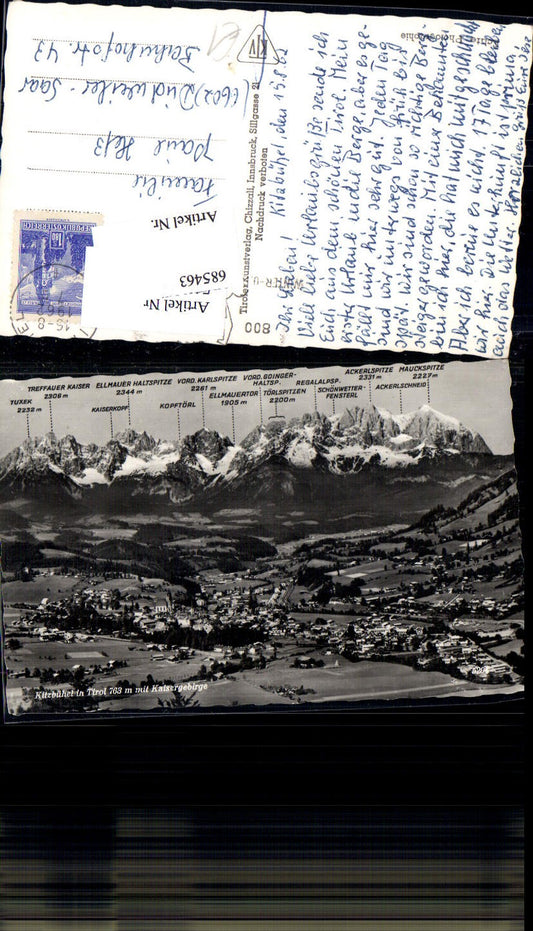 Kitzbühel, den 15.8.62
Ihr Lieben!
Viele liebe Urlaubsgrüße sende ich
Euch aus dem schönen Tirol. Mein
erster Urlaub in die Berge, aber es ge-
fällt mir hier sehr gut. Jeden Tag
sind wir unterwegs von früh bis
spät, wir sind schon so richtige Berg-
steiger geworden. Mit einer Bekannten
bin ich hier, die hat mich mitgeschleift
Aber ich bereue es nicht. 17 Tage bleiben
wir hier. Die Unterkunft ist prima,
auch das Wetter. Herzlichen Gruß Eure
Echte Photographie
KTV
800
WINTER-U.
Tiroler Kunstverlag, Chizzali, Innsbruck, Sillgasse 21
Nachdruck verboten
REPUBLIK ÖSTERREICH
1.50
16-8
Familie
Paul Heß
(6602) Dudweiler-Saar
Bahnhofstr. 43
Artikel Nr.
685463
Artikel Nr
TUXEK
2232 m
TREFFAUER KAISER
2306 m
KAISERKOPF
ELLMAUER HALTSPITZE
2344 m
KOPFTÖRL
VORD. KARLSPITZE
2261 m
ELLMAUERTOR
1905 m
VORD. GOINGER-
HALTSP.
TÖRLSPITZEN
2200 m
REGALALPSP.
SCHÖNWETTER-
FENSTERL
ACKERLSPITZE
2331 m
ACKERLSCHNEID
MAUCKSPITZE
2227 m
Kitzbühel in Tirol 763 m mit Kaisergebirge